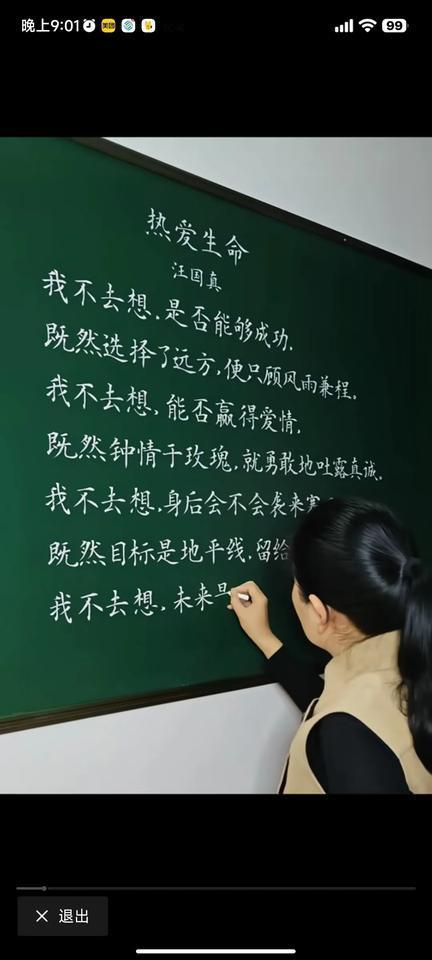 晚上9:01
美团
99
热爱生命
汪国真
我不去想,是否能够成功.
既然选择了远方,便只顾风雨兼程。
我不去想,能否赢得爱情,
既然钟情于玫瑰,就勇敢地吐露真诚.
我不去想,身后会不会袭来寒
既然目标是地平线,留给
我不去想,未来是
退出